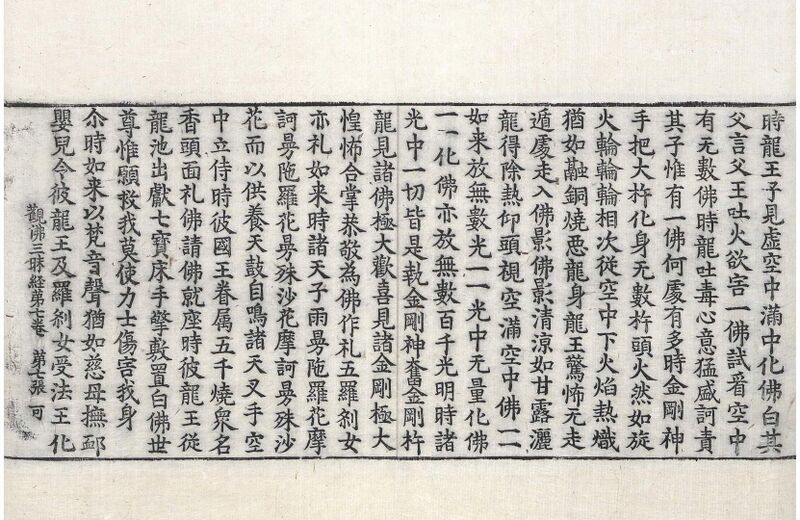 時龍王子見虛空中滿中化佛白其
父言父王吐火欲害一佛試看空中
有无數佛時龍吐毒心意猛盛訶責
其子惟有一佛何處有多時金剛神
手把大杵化身无數杵頭火然如旋
火輪輪輪相次從空中下火焰熱熾
猶如融銅燒惡龍身龍王驚怖无走
遁處走入佛影佛影清涼如甘露灑
龍得除熱仰頭視空滿空中佛一一
如来放無數光一一光中无量化佛
一一化佛亦放無數百千光明時諸
光中一切皆是執金剛神奮金剛杵
龍見諸佛極大歡喜見諸金剛極大
惶怖合掌恭敬為佛作礼五羅剎女
亦礼如来時諸天子雨曼陁羅花摩
訶曼陁羅花曼殊沙花摩訶曼殊沙
花而以供養天鼓自鳴諸天叉手空
中立侍時彼國王眷属五千燒衆名
香頭面礼佛請佛就座時彼龍王從
龍池出獻七寶床手擎敷置白佛世
尊惟願救我莫使力士傷害我身
尒時如来以梵音聲猶如慈母撫邺
嬰兒令彼龍王及羅剎女受法王化
觀佛三昧経第七卷 第十張 可